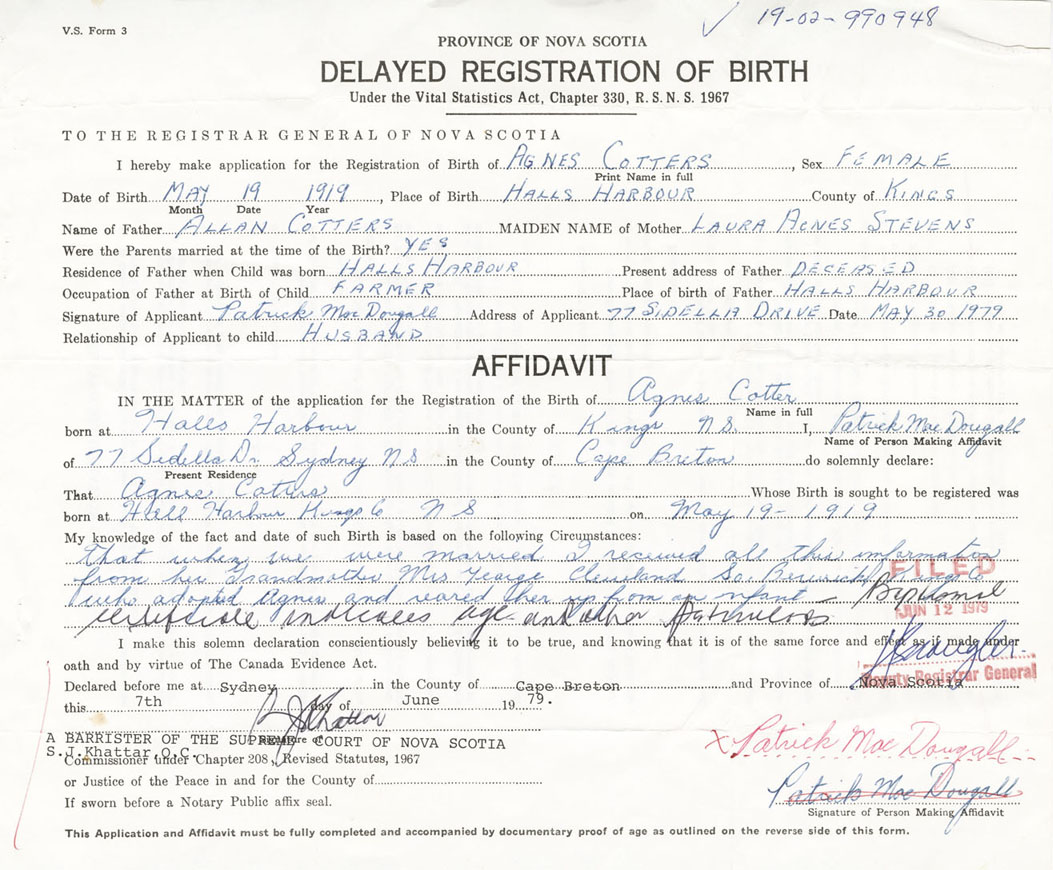 V.S. Form 3
✓ 19-02-990948
PROVINCE OF NOVA SCOTIA
DELAYED REGISTRATION OF BIRTH
Under the Vital Statistics Act, Chapter 330, R.S.N.S. 1967
TO THE REGISTRAR GENERAL OF NOVA SCOTIA
I hereby make application for the Registration of Birth of AGNES COTTERS, Sex FEMALE
Print Name in full
Date of Birth MAY 19 1919, Place of Birth HALLS HARBOUR County of KINGS
Month Date Year
Name of Father ALLAN COTTERS MAIDEN NAME of Mother LAURA AGNES STEVENS
Were the Parents married at the time of the Birth? YES
Residence of Father when Child was born HALLS HARBOUR Present address of Father DECEASED
Occupation of Father at Birth of Child FARMER Place of birth of Father HALLS HARBOUR
Signature of Applicant Patrick MacDougall Address of Applicant 77 SIDELLIA DRIVE Date MAY 30 1979
Relationship of Applicant to child HUSBAND
AFFIDAVIT
IN THE MATTER of the application for the Registration of the Birth of Agnes Cotter
Name in full
born at Halls Harbour in the County of Kings N.S. I, Patrick MacDougall
Name of Person Making Affidavit
of 77 Sidella Dr. Sydney NS in the County of Cape Breton do solemnly declare:
Present Residence
That Agnes Cotters Whose Birth is sought to be registered was
born at Hall Harbour Kings Co N S on May 19 - 1919
My knowledge of the fact and date of such Birth is based on the following Circumstances:
that when we were married I received all this information
from her Grandmother Mrs George Cleveland So. Berwick Kings Co
FILED
who adopted Agnes and reared her up from an infant - Baptismal
JUN 12 1979
certificate indicates age and other particulars
I make this solemn declaration conscientiously believing it to be true, and knowing that it is of the same force and effect as if made under
oath and by virtue of The Canada Evidence Act.
Deputy Registrar General
Declared before me at Sydney in the County of Cape Breton and Province of Nova Scotia
this 7th day of June 19 79.
S J Khattar
Signature of
A BARRISTER OF THE SUPREME COURT OF NOVA SCOTIA
S.J.Khattar Q.C.
Commissioner under Chapter 208, Revised Statutes, 1967
X Patrick MacDougall
or Justice of the Peace in and for the County of
Patrick MacDougall
If sworn before a Notary Public affix seal.
Signature of Person Making Affidavit
This Application and Affidavit must be fully completed and accompanied by documentary proof of age as outlined on the reverse side of this form.